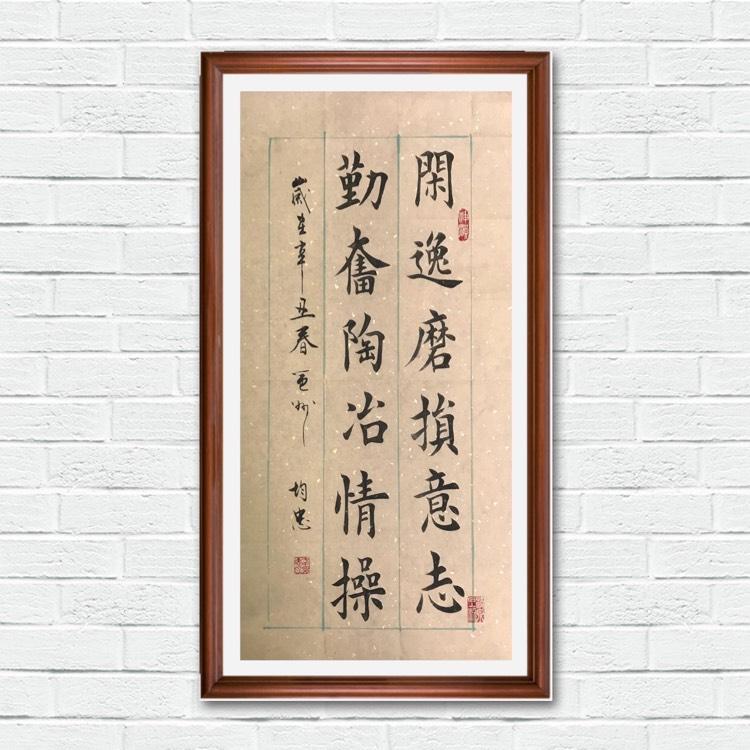 閑逸磨損意志
勤奮陶冶情操
歲在辛丑春
均忠